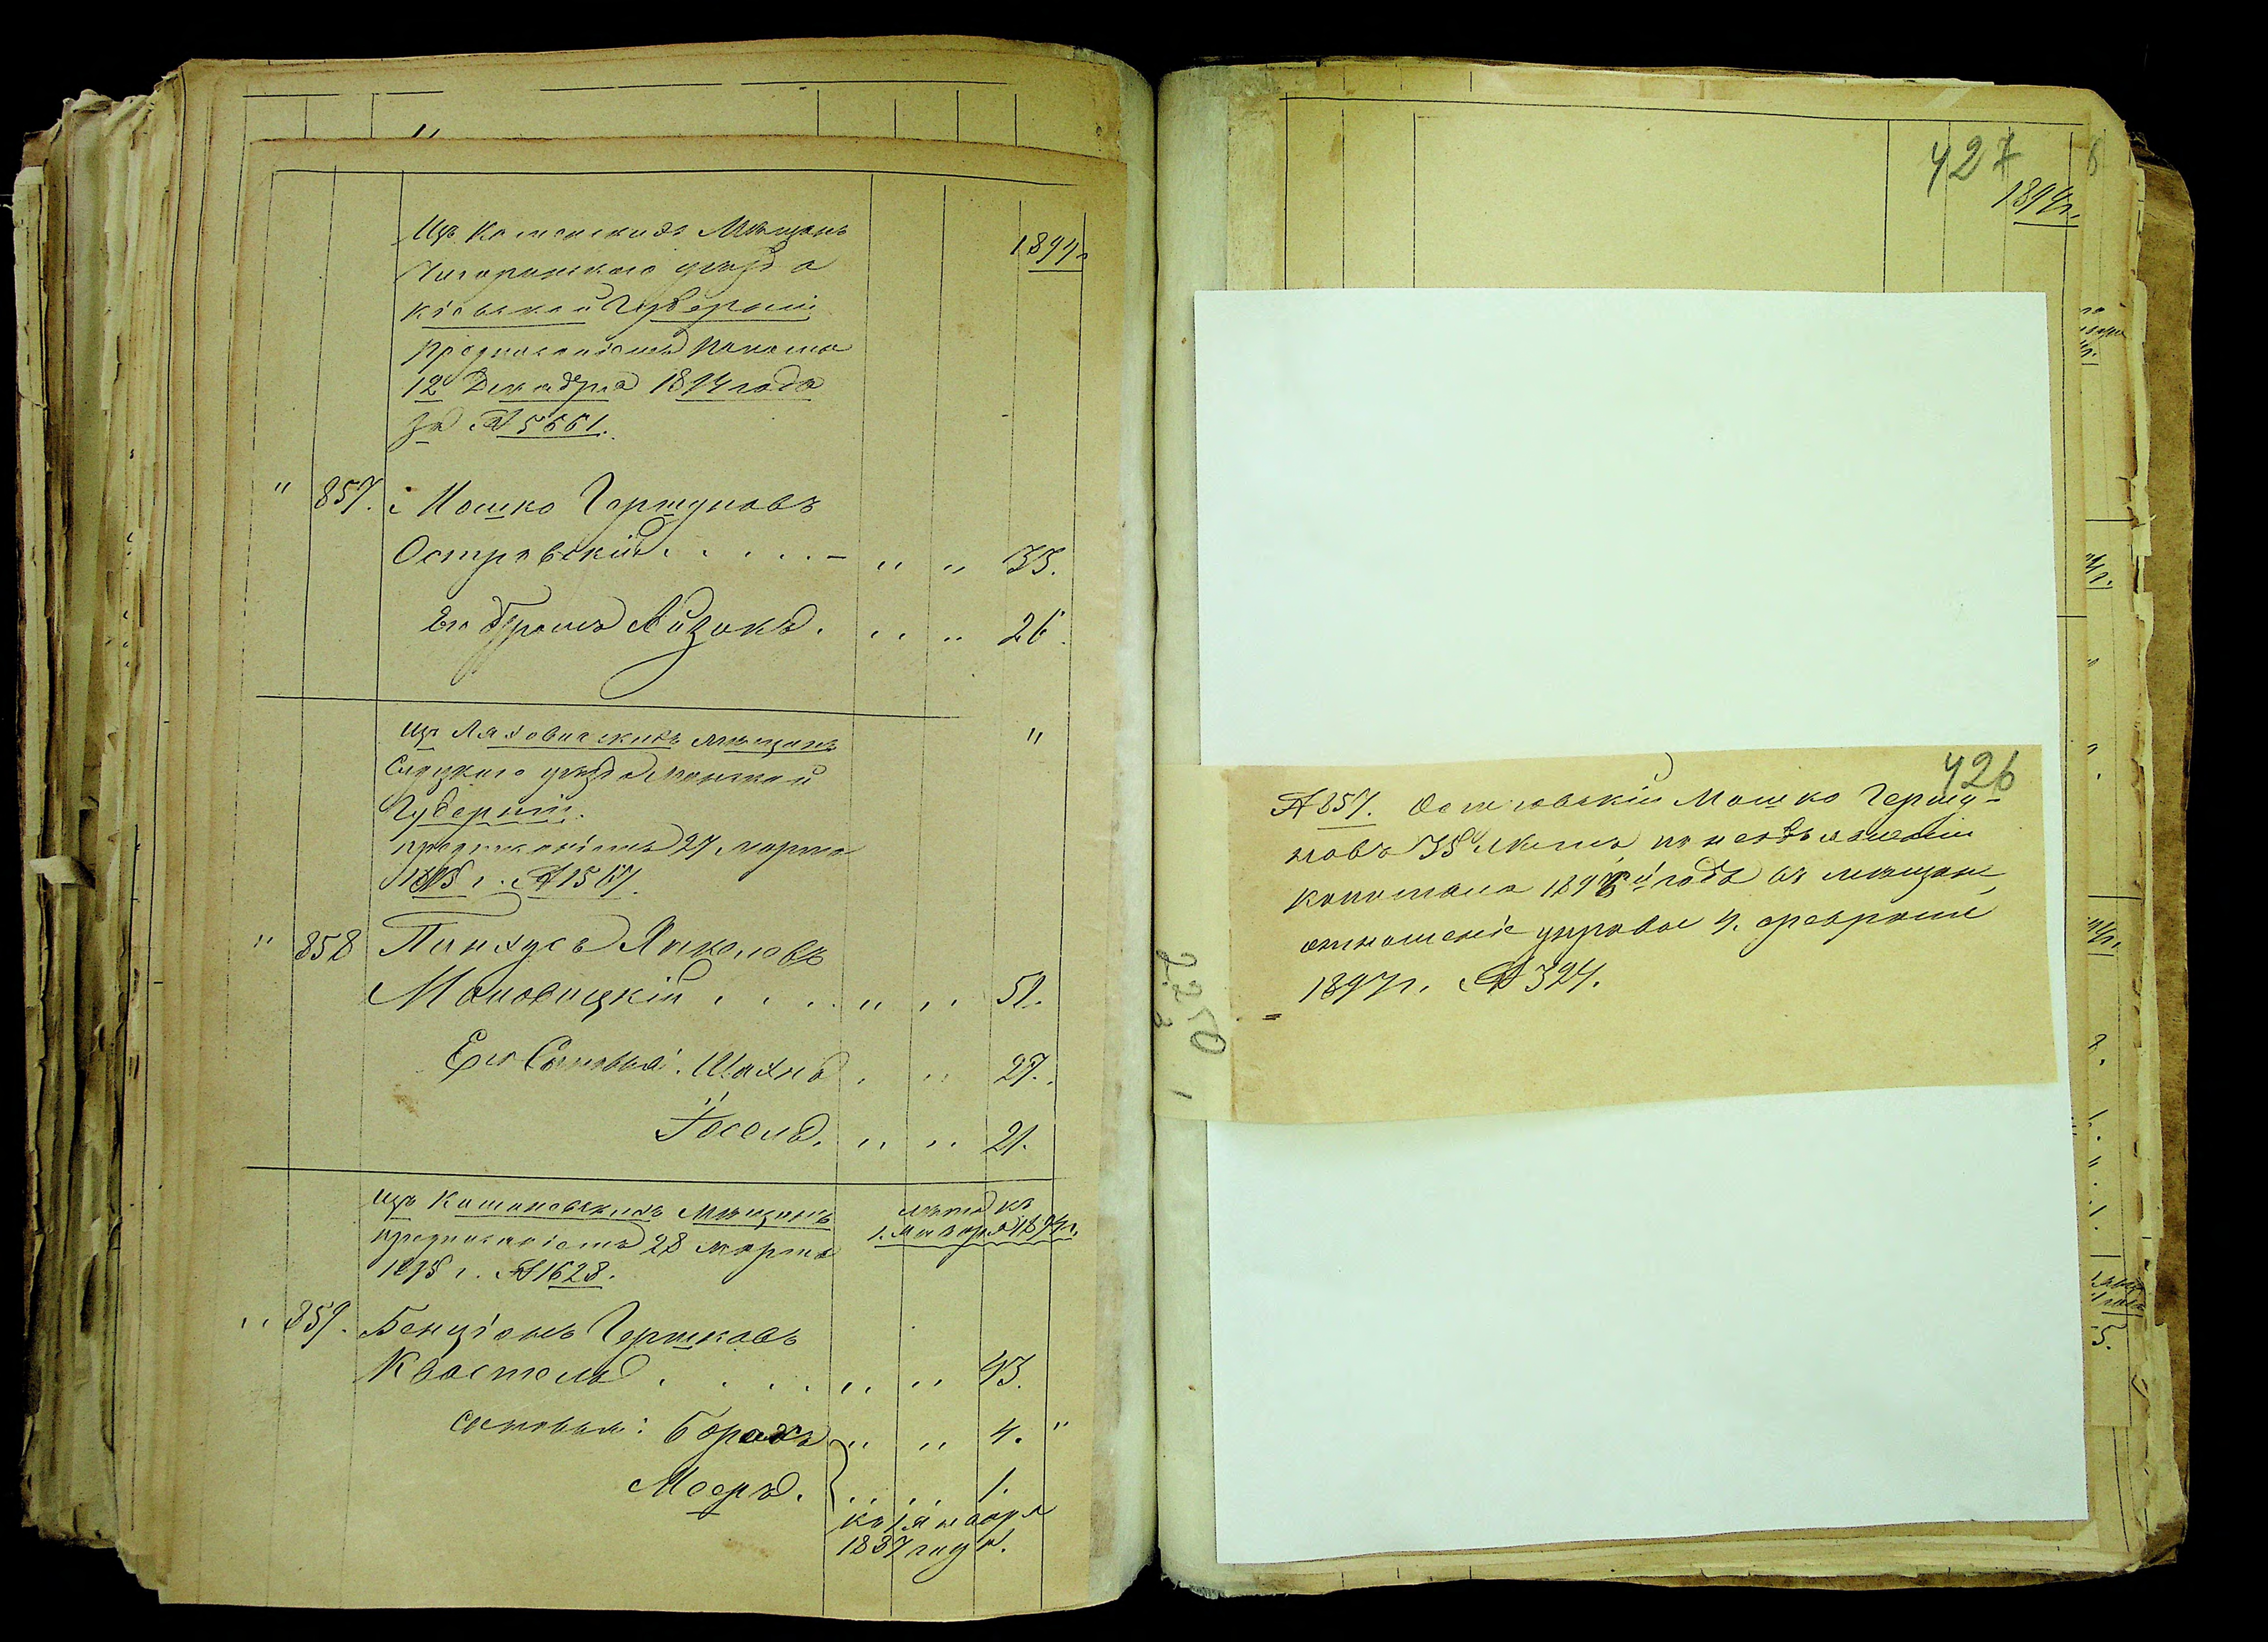 Изъ Каменскихъ Мѣщанъ
1894г
Чигиринскаго уѣзда
Кіевской Губерніи
Предписаніемъ Палаты
12 Декабря 1894 года
за № 5661.
" 857. Мошко Гершуновъ
Островскій . . . . . — " " 35.
Его братъ Айзикъ . " " 26.
Изъ Ляховичскихъ мѣщанъ "
Слуцкаго уѣзда Минской
Губерніи.
предписаніемъ 27 марта
1895 г. № 1567.
" 858 Пинхусъ Янкелевъ
Маловицкій . . . . " " 51.
Его Сыновья: Шахна . " 27.
Іосель. " " 21.
Изъ Мѣщанъ
лѣта къ
1. Января 1894г.
предписаніемъ 28 марта
1895 г. № 1628.
" 859. Бенціонъ Гершковъ
Квастель . . . . " " 43.
сыновья: Борахъ " " 4. "
Мееръ. " " 1.
къ 1 января
1897 года.
427
1894г.
426
№ 857. Островскій Мошко Гершу-
новъ 35 лѣтъ по
капитала 1896 года въ мѣщане,
отношеніе управы 4. февраля
1897г. № 324.